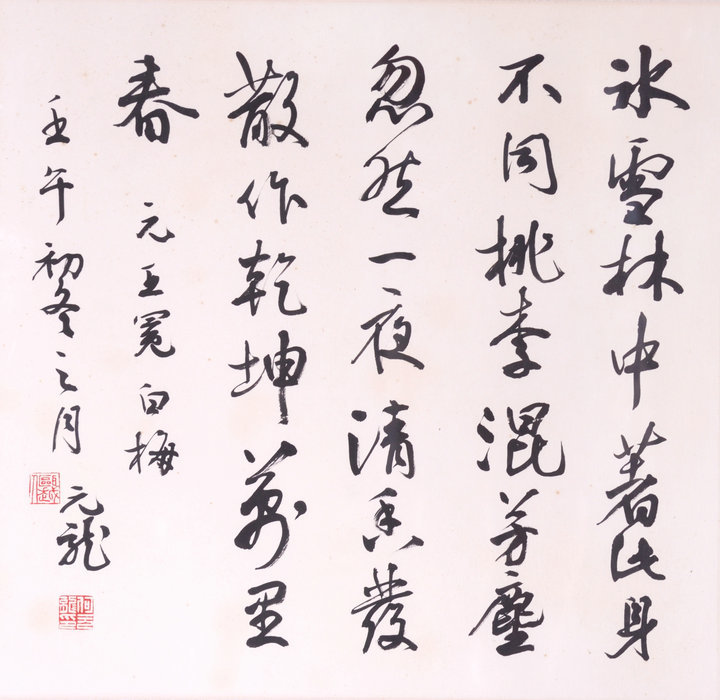 氷雪林中著此身
不同桃李混芳塵
忽然一夜清香發
散作乾坤萬里
春 元王冕白梅
壬午初冬之月 元龍